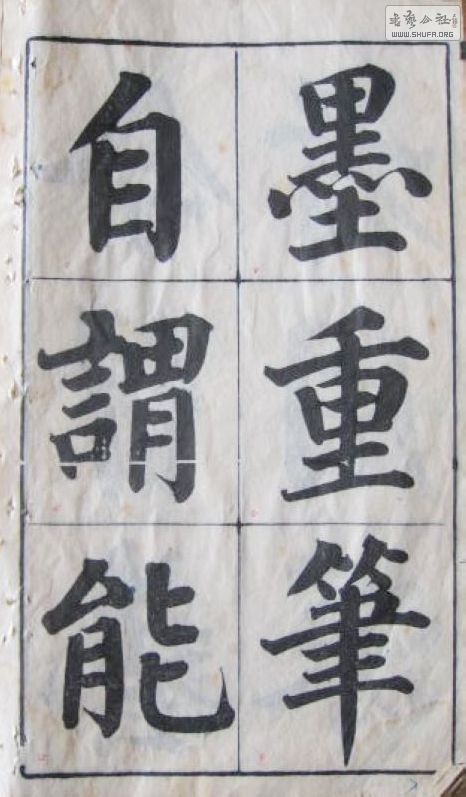 墨重筆
自謂能
书法公社
WWW.SHUFA.ORG